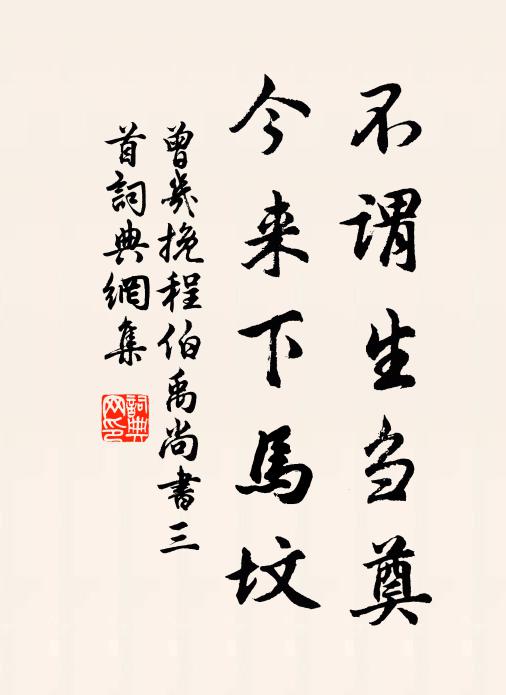 不谓生刍奠
今来下馬坟
曾幾挽程伯禹尚書三
首詞典網集
詞典
网印